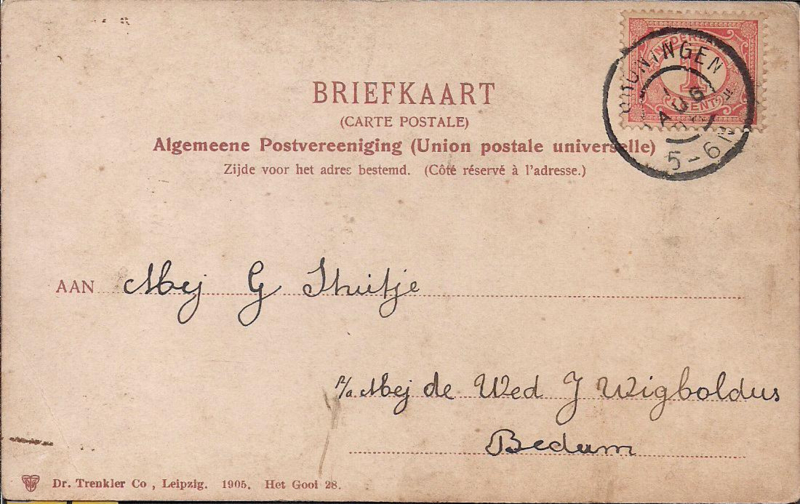 BRIEFKAART
(CARTE POSTALE)
Algemeene Postvereeniging (Union postale universelle)
Zijde voor het adres bestemd. (Côté réservé à l'adresse.)
GRONINGEN
5-6N
NEDERLAND
1
CENT
AAN Mej G Thuitje
p/a Mej de Wed J Wigboldus
Bedum
Dr. Trenkler Co, Leipzig. 1905. Het Gooi 28.